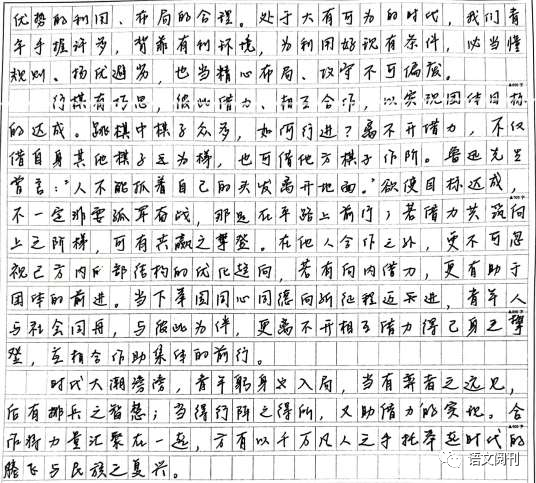 优势的利用、布局的合理。处于大有可为的时代，我们青
年手握许多，背靠有利环境，为利用好现有条件，必当懂
规则、扬优避劣，也当精心布局、攻守不可偏废。
行棋有巧思，彼此借力、相互合作，以实现团体目标
的达成。跳棋中棋子众多，如何行进？离不开借力，不仅
借自身其他棋子互为梯，也可借他方棋子作阶。鲁迅先生
曾言："人不能抓着自己的头发离开地面。"欲使目标达成，
不一定非要孤军奋战，那是在平路上前行；若借力共筑向
上之阶梯，可有共赢之攀登。在他人合作之外，更不可忽
视己方内部结构的优化趋向，若有向内借力，更有助于
团体的前进。当下举国同心同德向新征程迈进，青年人
与社会同舟，与彼此为伴，更离不开相互借力得己身之攀
登，互相合作助集体的前行。
时代大潮滂滂，青年躬身以入局，当有弈者之远见，
后有排兵之智慧；当得行阶之得所，又助借力的实地。合
作将力量汇聚在一起，方有以千万凡人之手托举起时代的
腾飞与民族之复兴。
语文阅刊